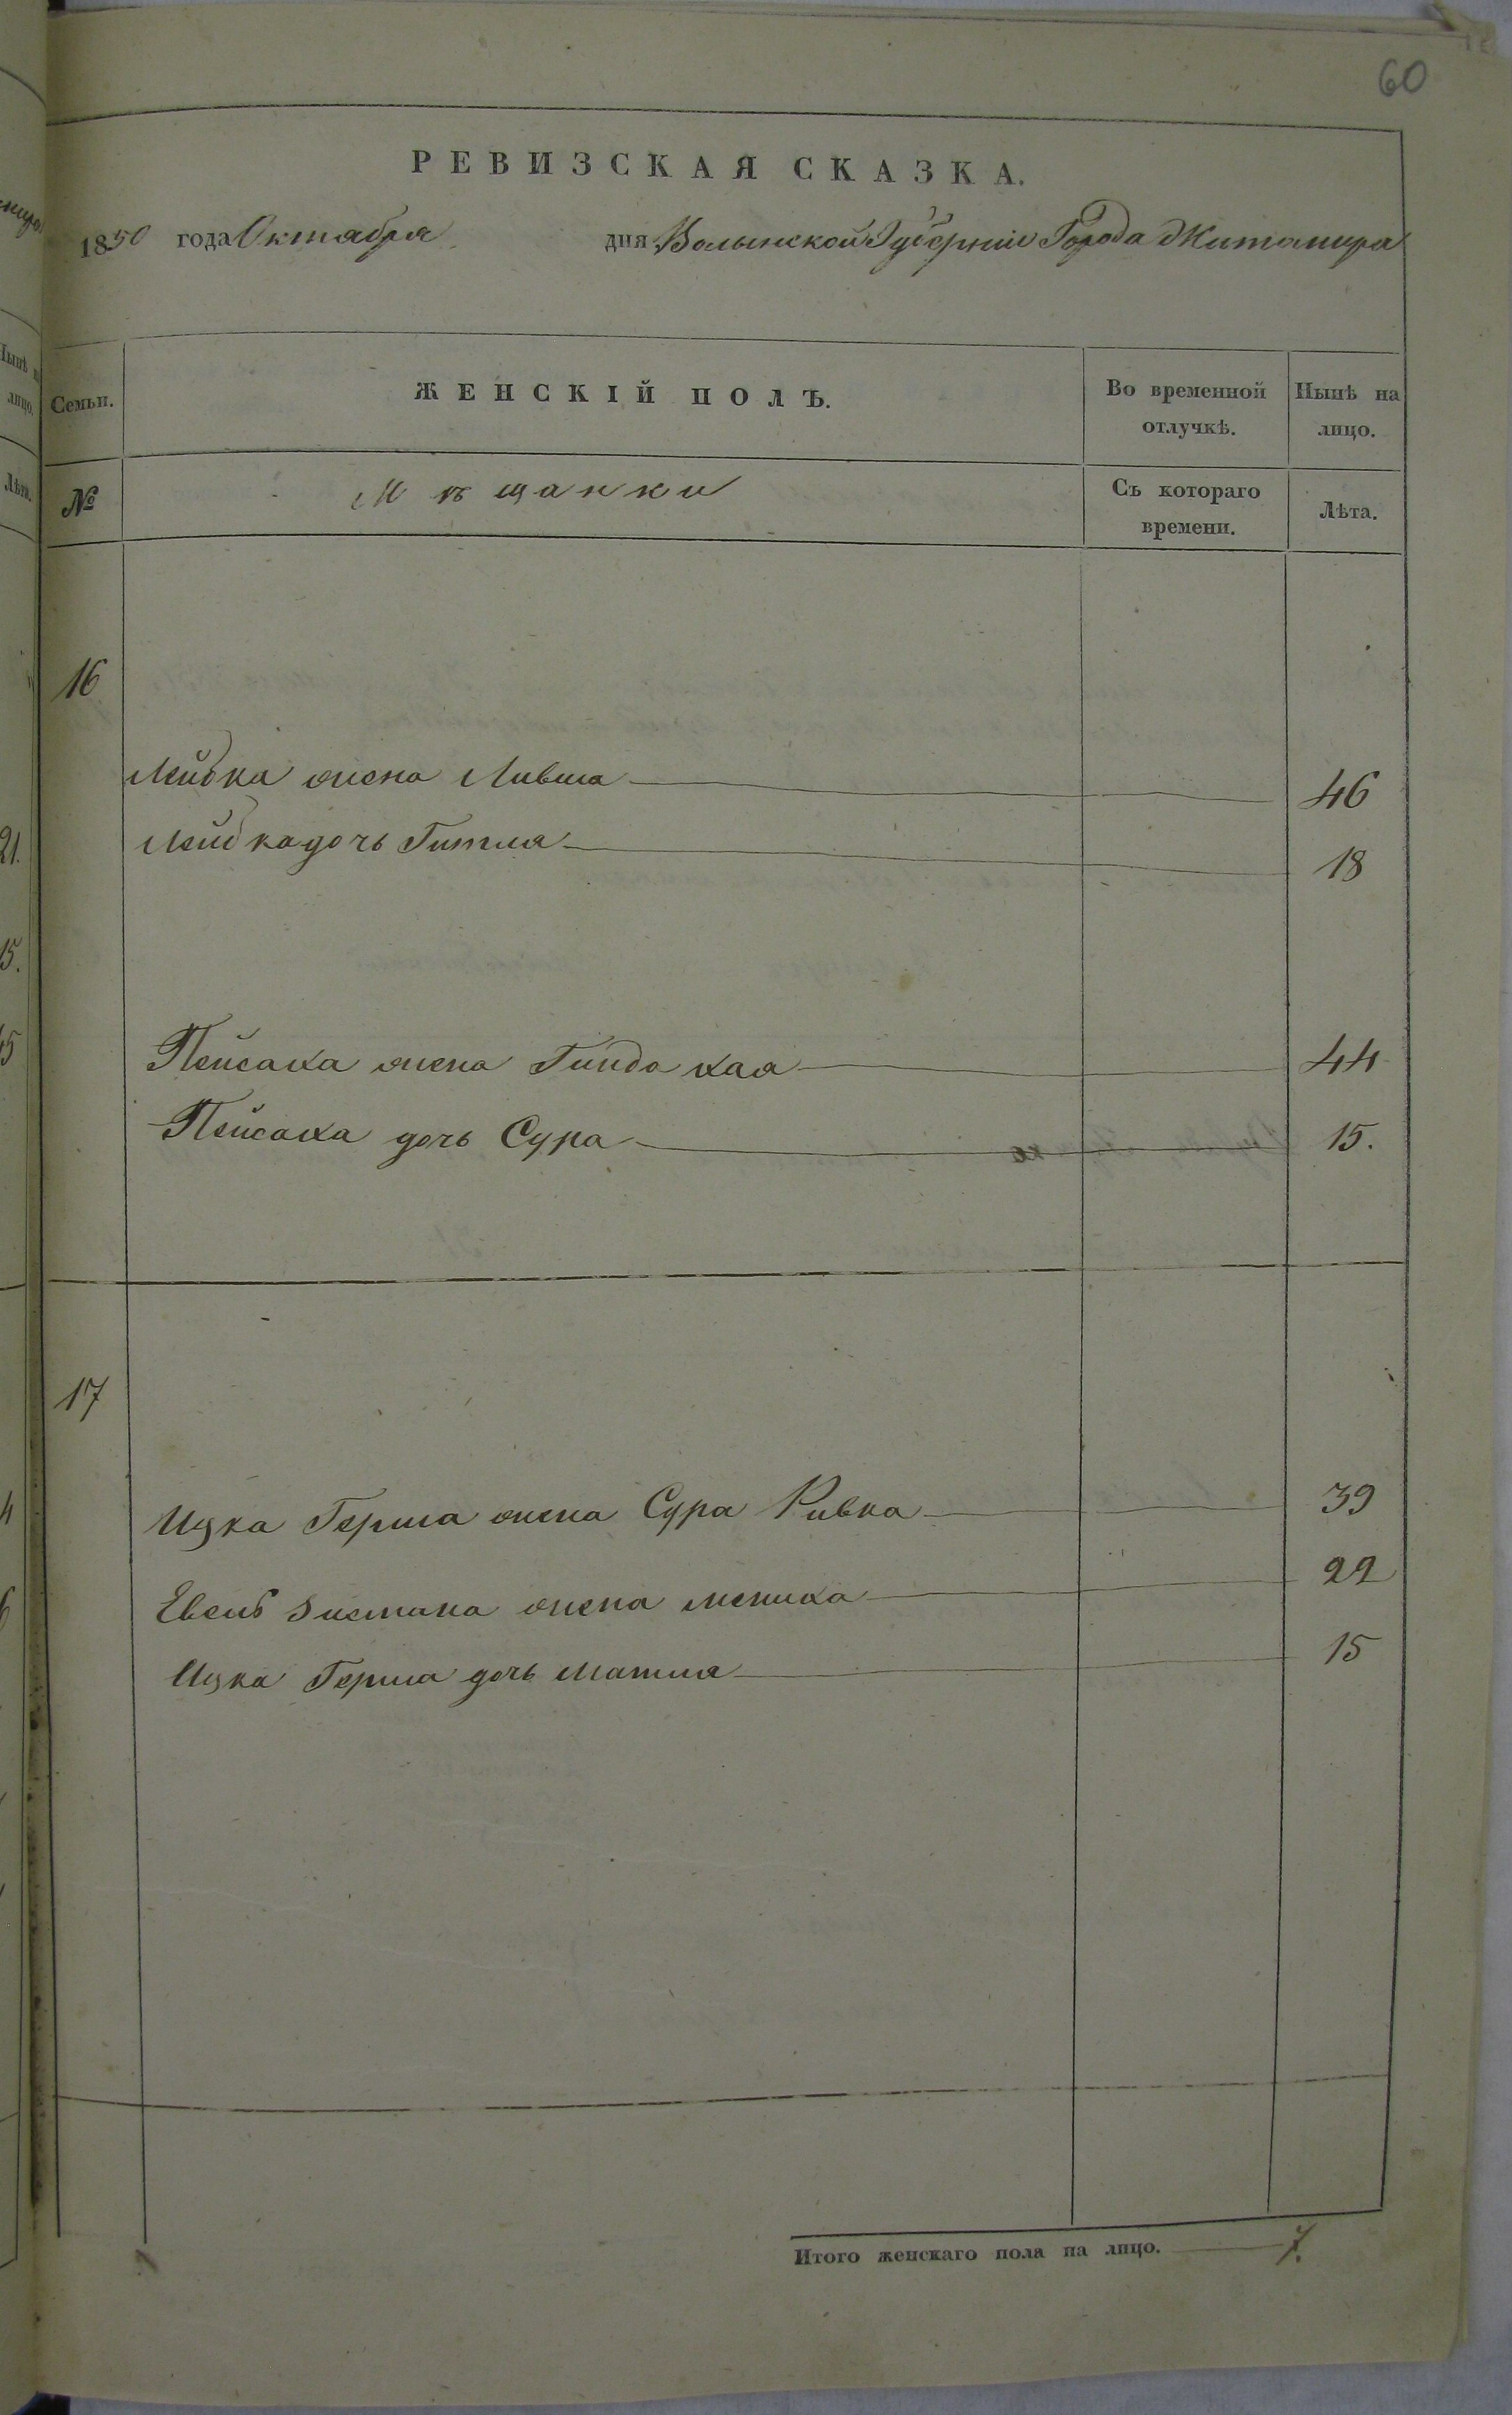 60
РЕВИЗСКАЯ СКАЗКА.
1850 года Октября дня Волынской Губерніи Города Житомира
Семьи. ЖЕНСКІЙ ПОЛЪ. Во временной отлучкѣ. Нынѣ на лицо.
№ Мѣщанки Съ котораго времени. Лѣта.
16
Лейбка жена Лившa 46
Лейбка дочь Гитля 18
Пейсаха жена Гинда хая 44
Пейсаха дочь Сура 15.
17
Ицка Герша жена Сура Ривка 39
жена 22
Ицка Герша дочь Матля 15
Итого женскаго пола на лицо. 7.